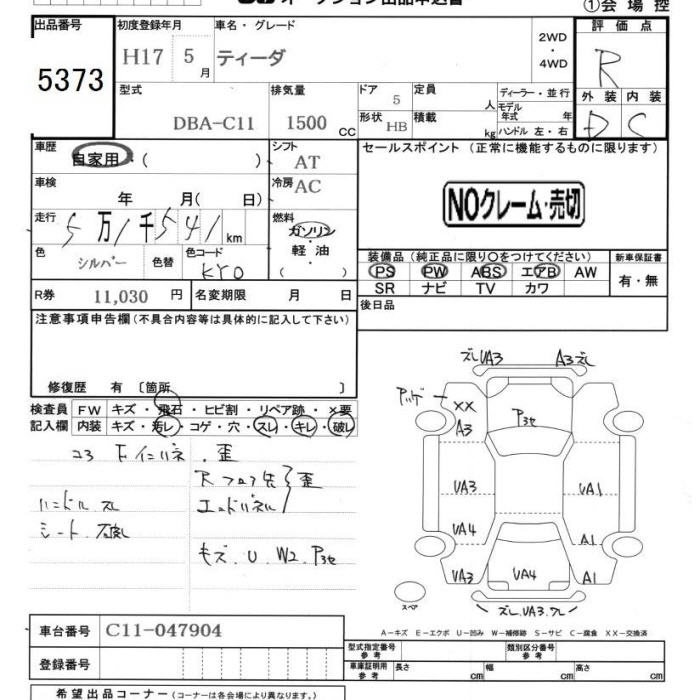 ①会場控
出品番号 初度登録年月 車名・グレード 評価点
5373 H17 5月 ティーダ 2WD・4WD R
型式 排気量 ドア 定員 ディーラー・並行 外装 内装
DBA-C11 1500 CC 5 人 モデル年式 年 D C
形状 HB 積載 kg ハンドル 左・右
車歴 自家用・( ) シフト AT セールスポイント (正常に機能するものに限ります)
車検 年 月( 日) 冷房 AC
NOクレーム・売切
走行 5万1千541km 燃料 ガソリン・軽油・( )
色 シルバー 色替 色コード KY0
装備品 (純正品に限り○をつけてください) 新車保証書
PS PW ABS エアB AW 有・無
SR ナビ TV カワ
R券 11,030円 名変期限 月 日 後日品
注意事項申告欄 (不具合内容等は具体的に記入して下さい)
修復歴 有 〔箇所 〕
検査員 FW キズ・飛石・ヒビ割・リペア跡・×要
記入欄 内装 キズ・汚レ・コゲ・穴・スレ・キレ・破レ
コア F インパネ . 歪
R フロア先 歪
ハンドル スレ エンドパネル
シート . 破レ
キズ . U . W2
ズレ UA3 A3 ズレ
XX
A3
UA3 UA1
UA4 A1
UA3 UA4 A1
スペア
A-キズ E-エクボ U-凹み W-補修跡 S-サビ C-腐食 XX-交換済
車台番号 C11-047904
登録番号
型式指定番号 参考 類別区分番号 参考
車庫証明用 参考 長さ cm 幅 cm 高さ cm
希望出品コーナー (コーナーは各会場により異なります。)